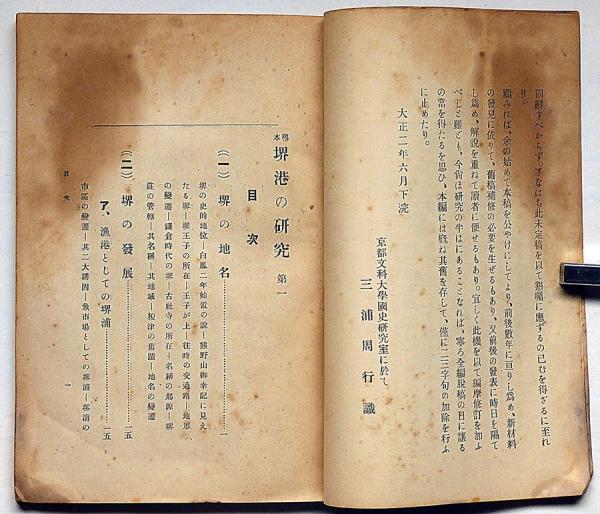 固辭すべからず。すなはち此未定稿を以て懇囑に應ずるの已むを得ざるに至れ
り。
顧みれば、余の始めて本稿を公やけにしてより、前後數年に亘りし爲め、新材料
の發見に依りて、舊稿補修の必要を生ぜるもあり、又前後の發表に時日を隔て
し爲め、解説を重ねて讀者に便せるもあり。宜しく此機を以て編摩修訂を加ふ
べしと雖ども、今尙ほ研究の半ばにあることなれば、寧ろ全編脱稿の日に讓る
の當を得たるを思ひ、本編には槪ね其舊を存して、僅に一二三字句の加除を行ふ
に止めたり。
大正二年六月下浣
京都文科大學國史研究室に於て、
三浦周行識
堺港の研究 第一
目次
(一) 堺の地名……一
堺の史的地位―白鳳二年始置の說―熊野山御幸記に見え
たる堺―堺王子の所在―王子が上―往時の交通路―地形
の變遷―鎌倉時代の堺―古社寺の所在―名稱の起源―堺
莊の管轄―其名稱―其地域―榎津の舊蹟―地名の變遷
(二) 堺の發展……一五
ア、漁港としての堺浦……一五
市區の變遷―其二大誘因―魚市場としての堺浦―堺浦の
目次
一